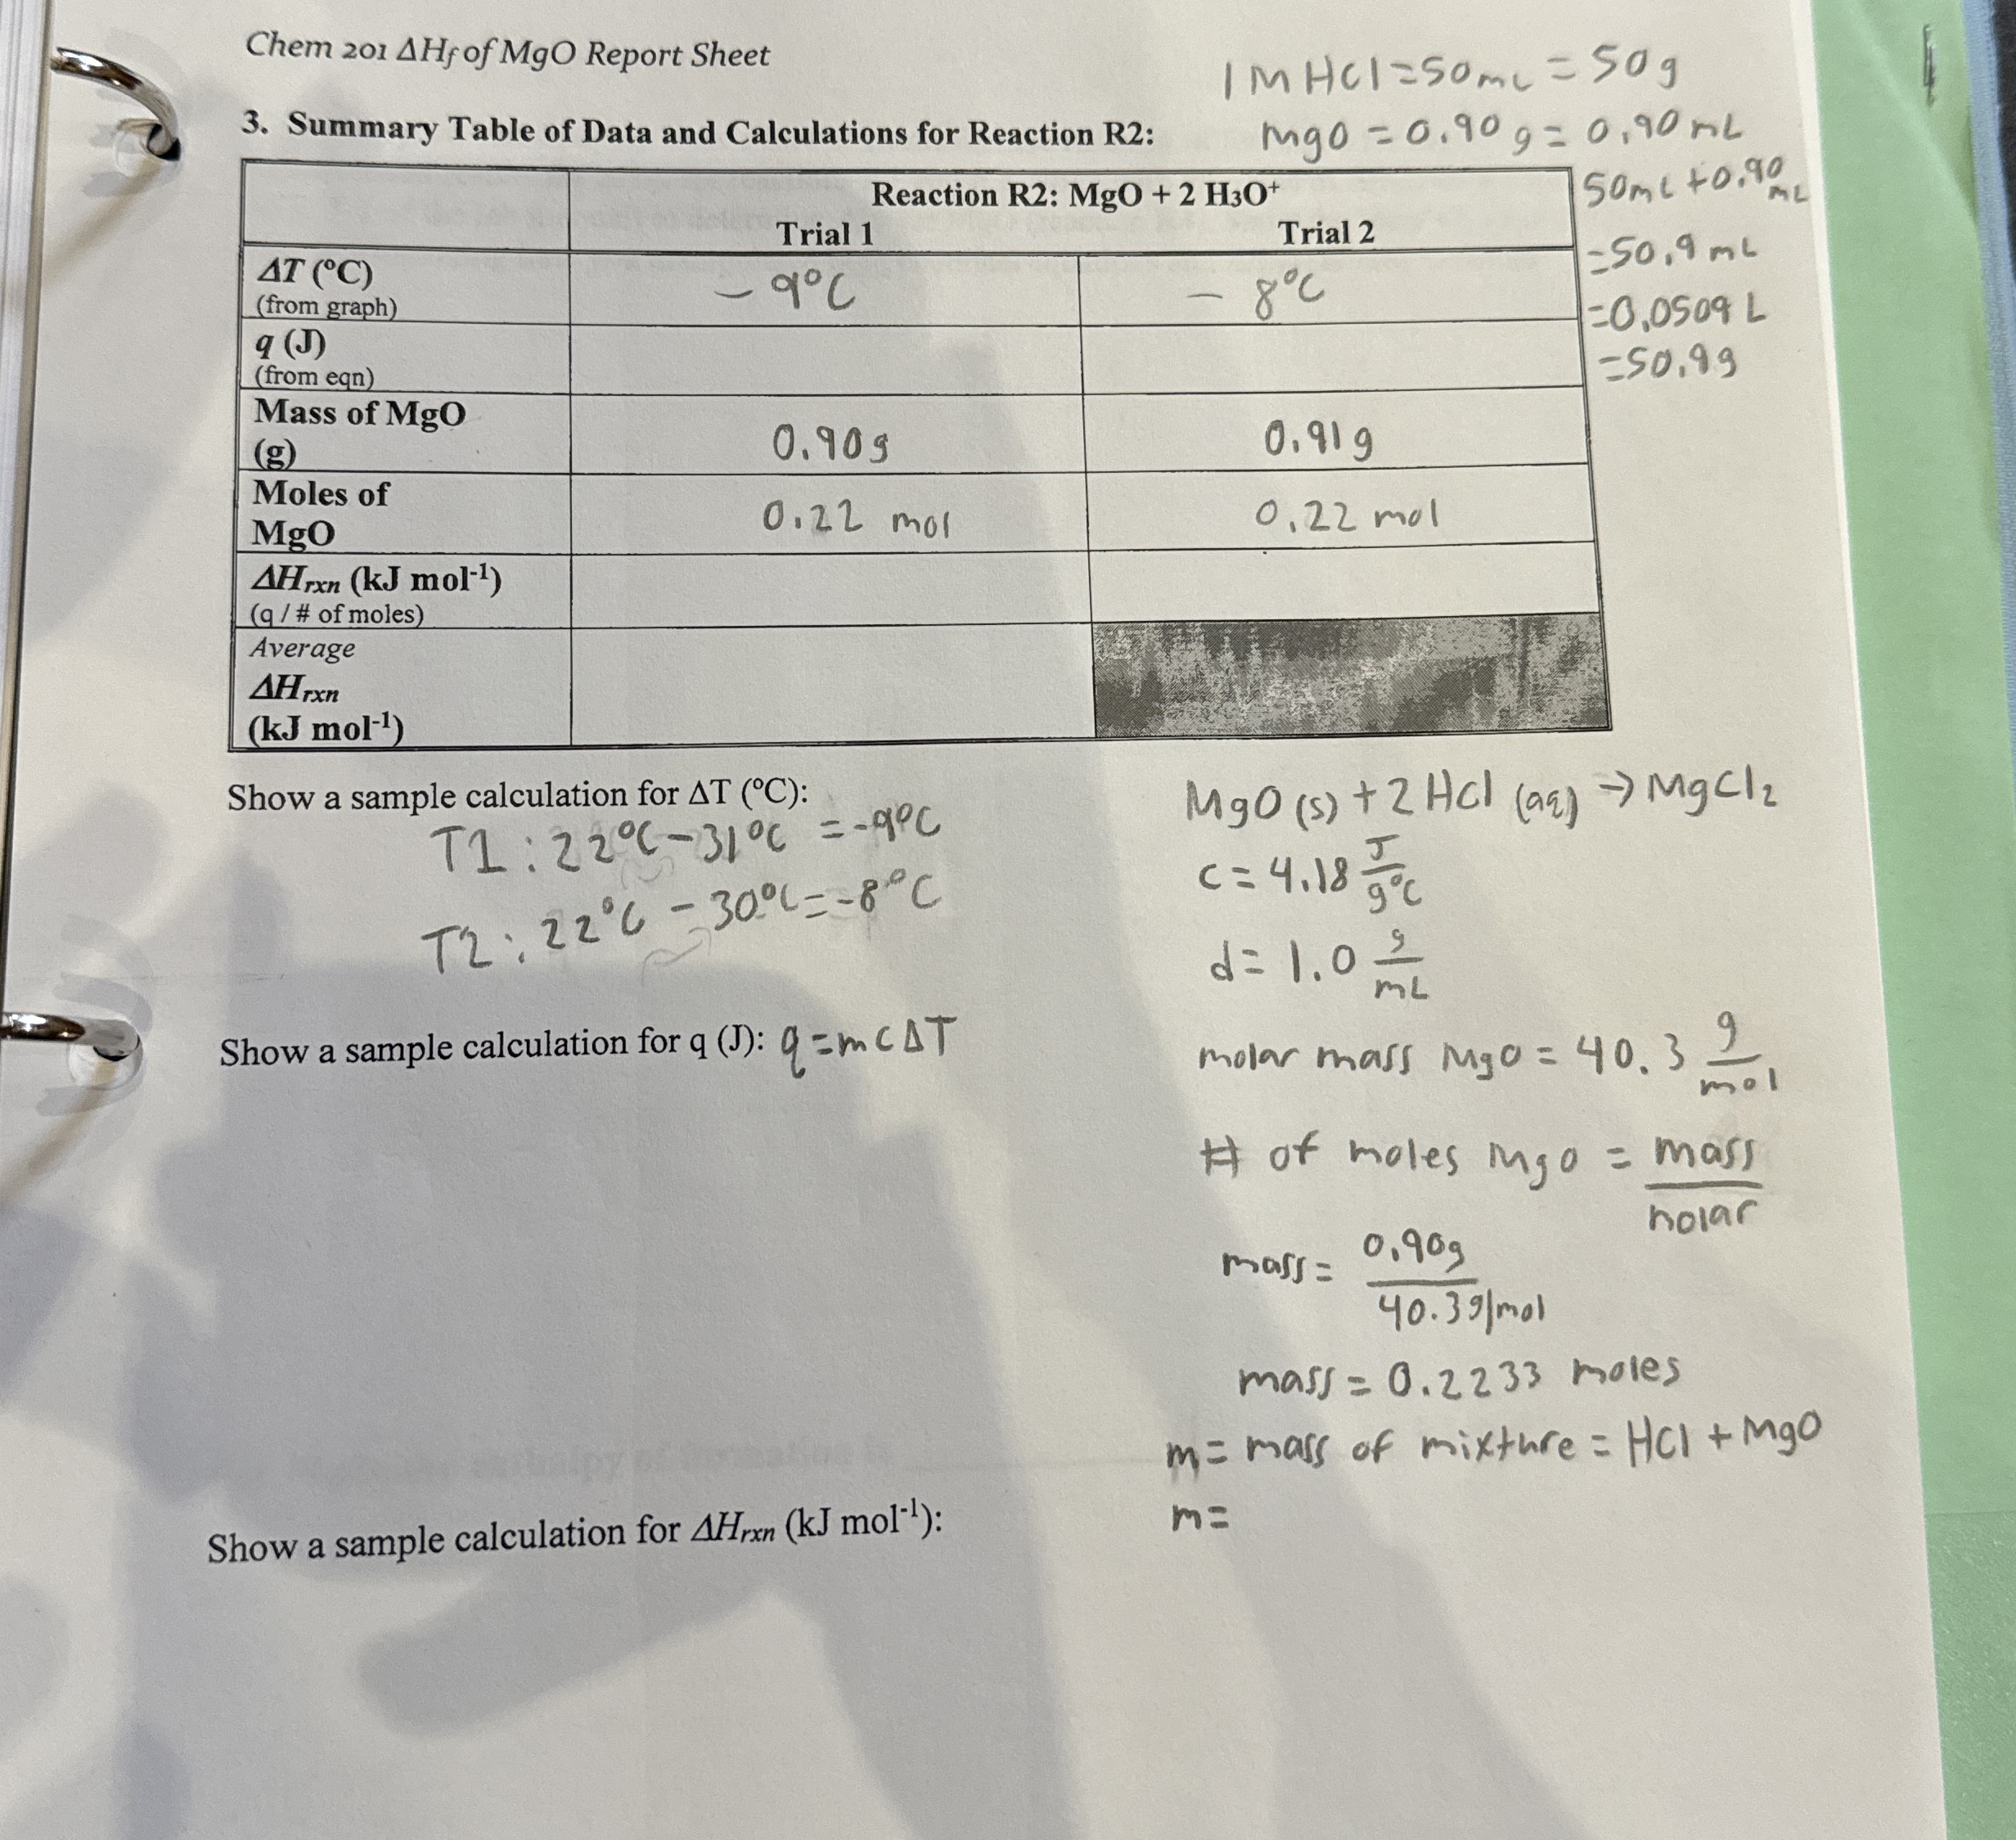 Chem 201 ΔHf of MgO Report Sheet
1M HCl = 50mL = 50g
3. Summary Table of Data and Calculations for Reaction R2:
MgO = 0.90g = 0.90mL
50mL + 0.90 mL
= 50.9 mL
= 0.0509 L
= 50.9g
Reaction R2: MgO + 2 H₃O⁺
Trial 1 Trial 2
ΔT (ºC) −9°C −8°C
(from graph)
q (J)
(from eqn)
Mass of MgO
(g) 0.90g 0.91g
Moles of
MgO 0.22 mol 0.22 mol
ΔHrxn (kJ mol⁻¹)
(q / # of moles)
Average
ΔHrxn
(kJ mol⁻¹)
Show a sample calculation for ΔT (ºC):
T1: 22°C − 31°C = -9°C
T2: 22°C − 30°C = -8°C
MgO (s) + 2HCl (aq) → MgCl₂
c = 4.18 J/g°C
d = 1.0 g/mL
Show a sample calculation for q (J): q = mcΔT
molar mass MgO = 40.3 g/mol
# of moles MgO = mass/molar
mass = 0.90g/40.3g/mol
mass = 0.2233 moles
m = mass of mixture = HCl + MgO
m =
Show a sample calculation for ΔHrxn (kJ mol⁻¹):